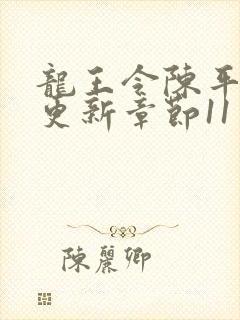 龍王令陳平
更新章節11
陳麗卿